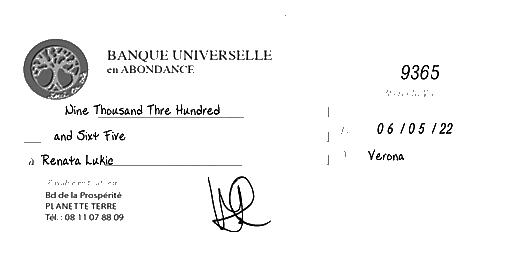 BANQUE UNIVERSELLE
en ABONDANCE
9365
Nine Thousand Thre Hundred
and Sixt Five
06/05/22
à Renata Lukic
Verona
Bd de la Prospérité
PLANETTE TERRE
Tél. : 08 11 07 88 09